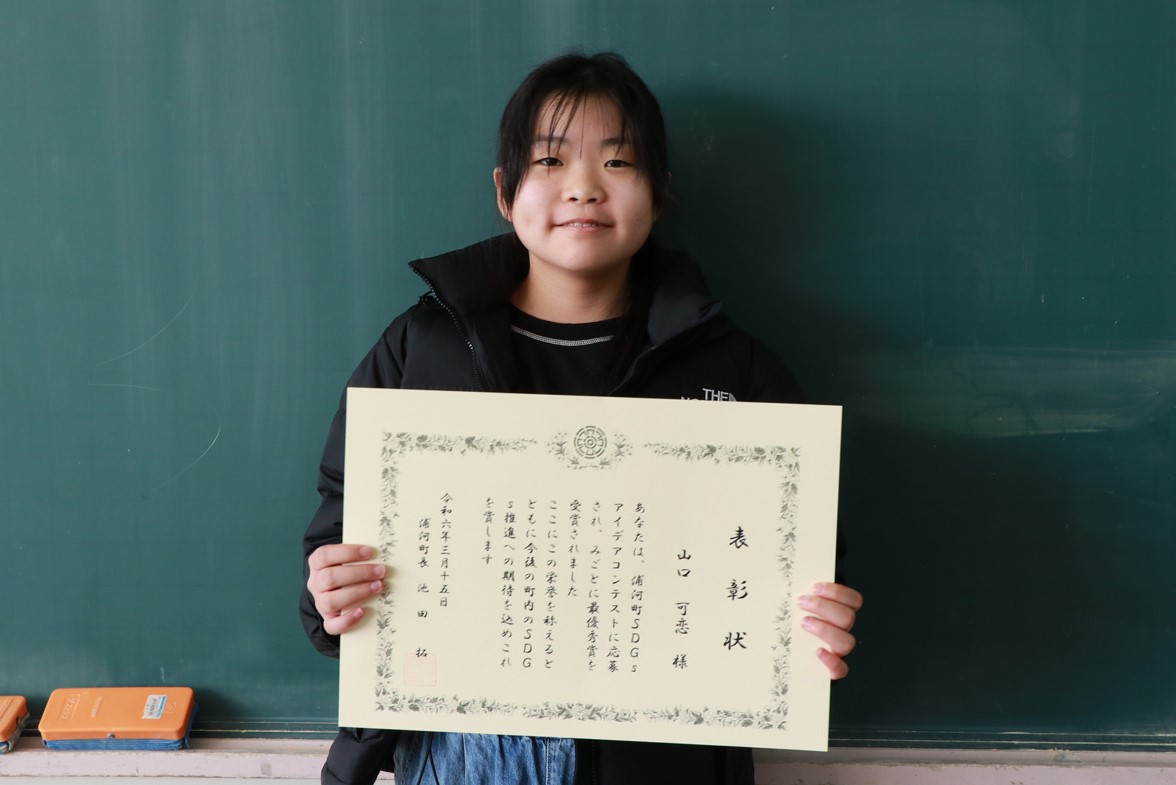 表彰状
山口 可恋 様
あなたは、浦河町SDGs
アイデアコンテストに応募
され、みごとに最優秀賞を
受賞されました
ここにこの栄誉を称えると
ともに今後の町内のSDG
s推進への期待を込めこれ
を賞します
令和六年三月十五日
浦河町長 池田 拓
THE